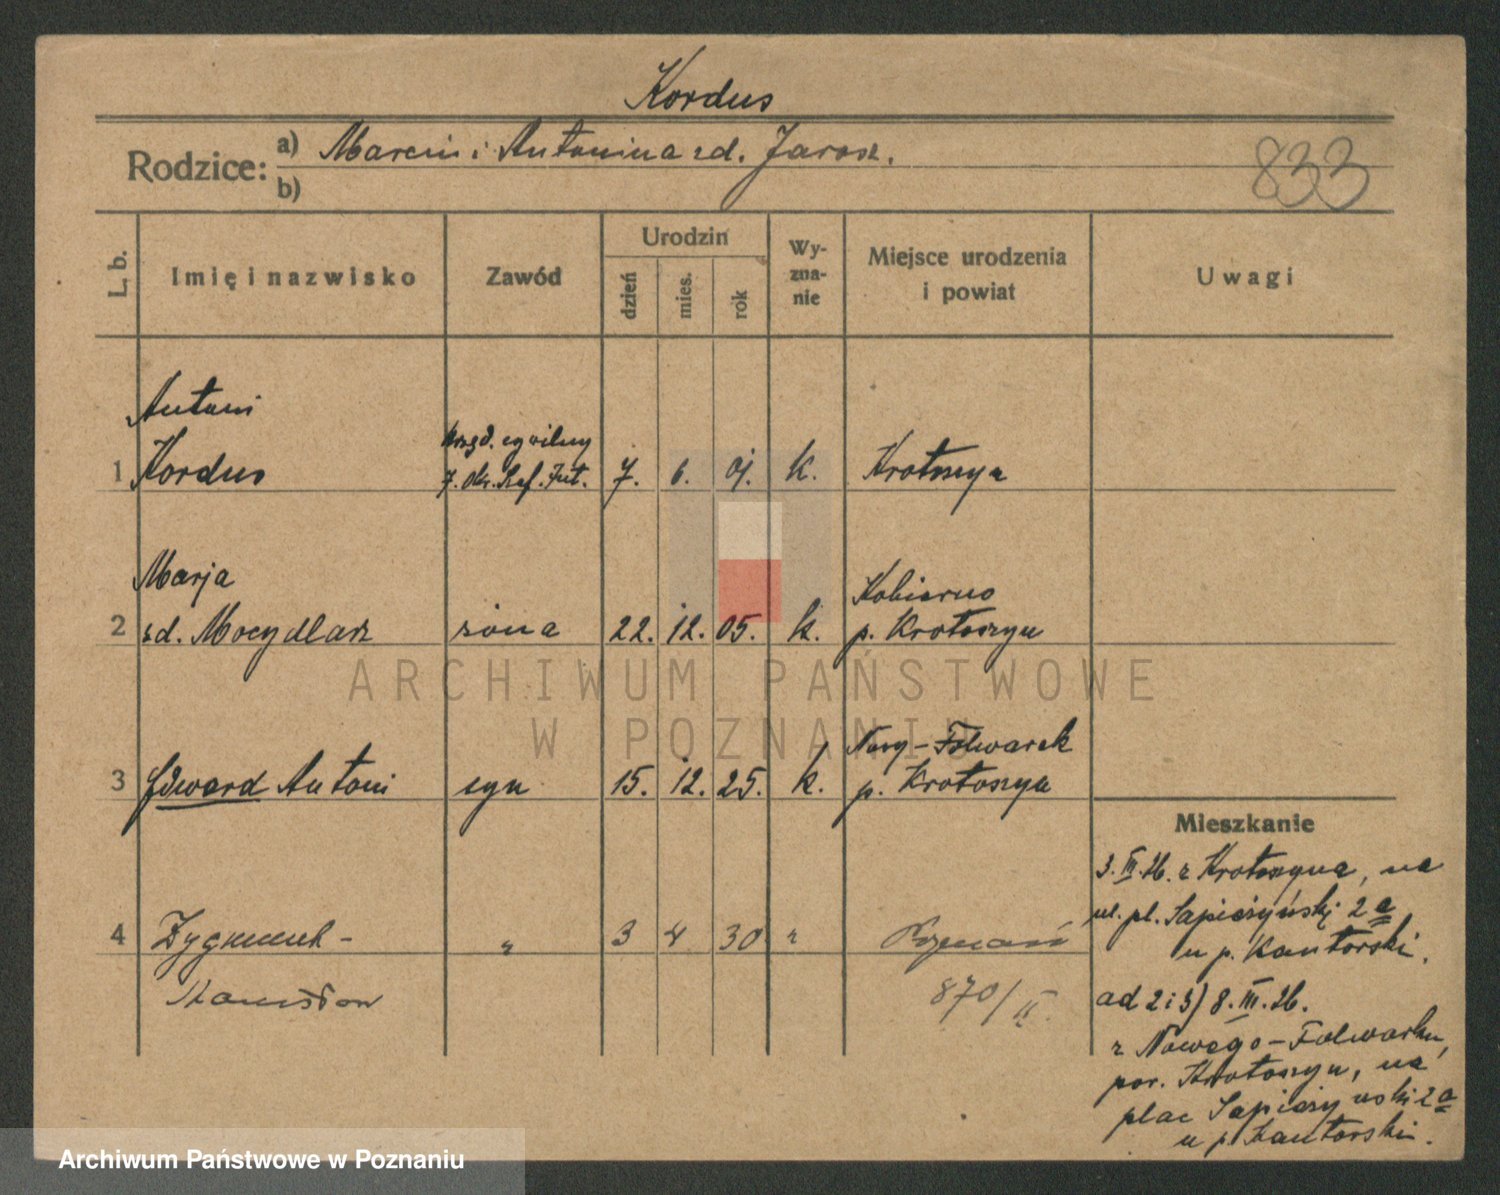 Kordus
Rodzice:
a) Marcin i Antonina zd. Jarosz.
b)
833
L. b.
Imię i nazwisko
Zawód
Urodzin
dzień
mies.
rok
Wy-
zna-
nie
Miejsce urodzenia
i powiat
Uwagi
Antoni
1 Kordus
urzęd. cywilny
7. Okr. Szef. Int.
7. 6. 01. k. Krotoszyn
Marja
2 zd. Mocydlarz żona 22. 12. 05. k.
Kobierno
p. Krotoszyn
3 Edward Antoni syn 15. 12. 25. k.
Nowy-Folwarek
p. Krotoszyn
4 Zygmunt- " 3 4 30 " Poznań
Stanisław
870/II.
Mieszkanie
3.III.26. z Krotoszyna, na
ul. pl. Sapieżyński 2a
u p. Kantorski.
ad 2 i 3) 8.III.26.
z Nowego-Folwarku,
pow. Krotoszyn, na
plac Sapieżyński 2a
u p. Kantorski.
ARCHIWUM PAŃSTWOWE
W POZNANIU
Archiwum Państwowe w Poznaniu